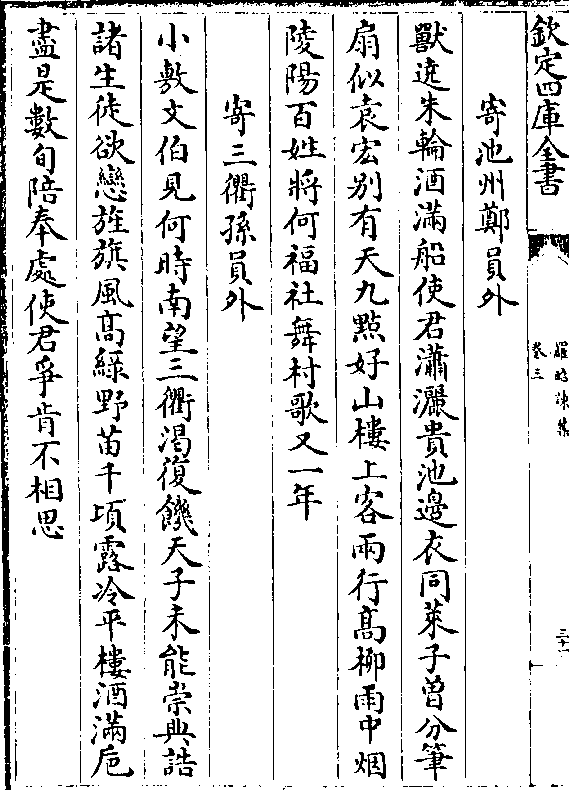 欽定四庫全書
羅昭諫集
卷三
三十一
寄池州鄭員外
獸逩朱輪酒滿船使君瀟灑貴池邊衣同萊子曾分筆
扇似袁宏别有天九點好山樓上客兩行髙柳雨中烟
陵陽百姓將何福社舞村歌又一年
寄三衢孫員外
小敷文伯見何時南望三衢渴復饑天子未能崇典誥
諸生徒欲戀旌旗風髙緑野苗千頃露冷平樓酒滿巵
盡是數旬陪奉處使君爭肯不相思